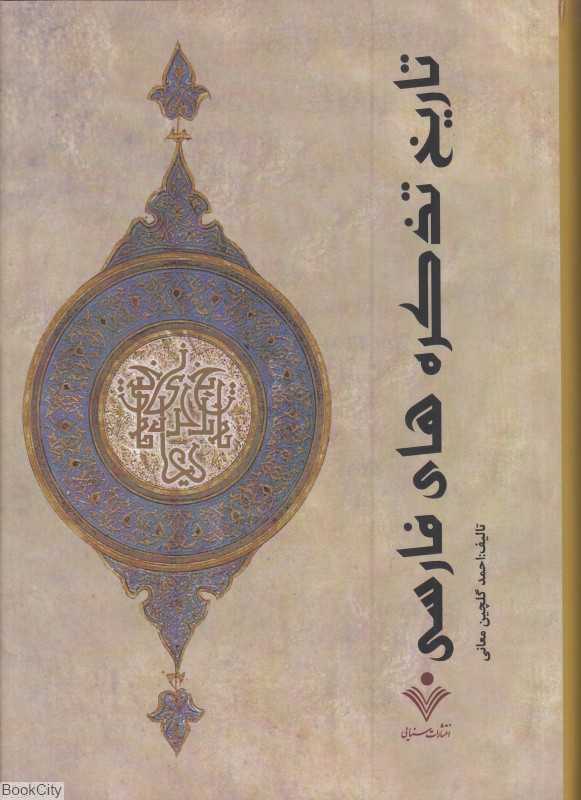 تاریخ تذکره های فارسی
تالیف:احمد گلچین معانی
انتشارات سنایی
BookCity